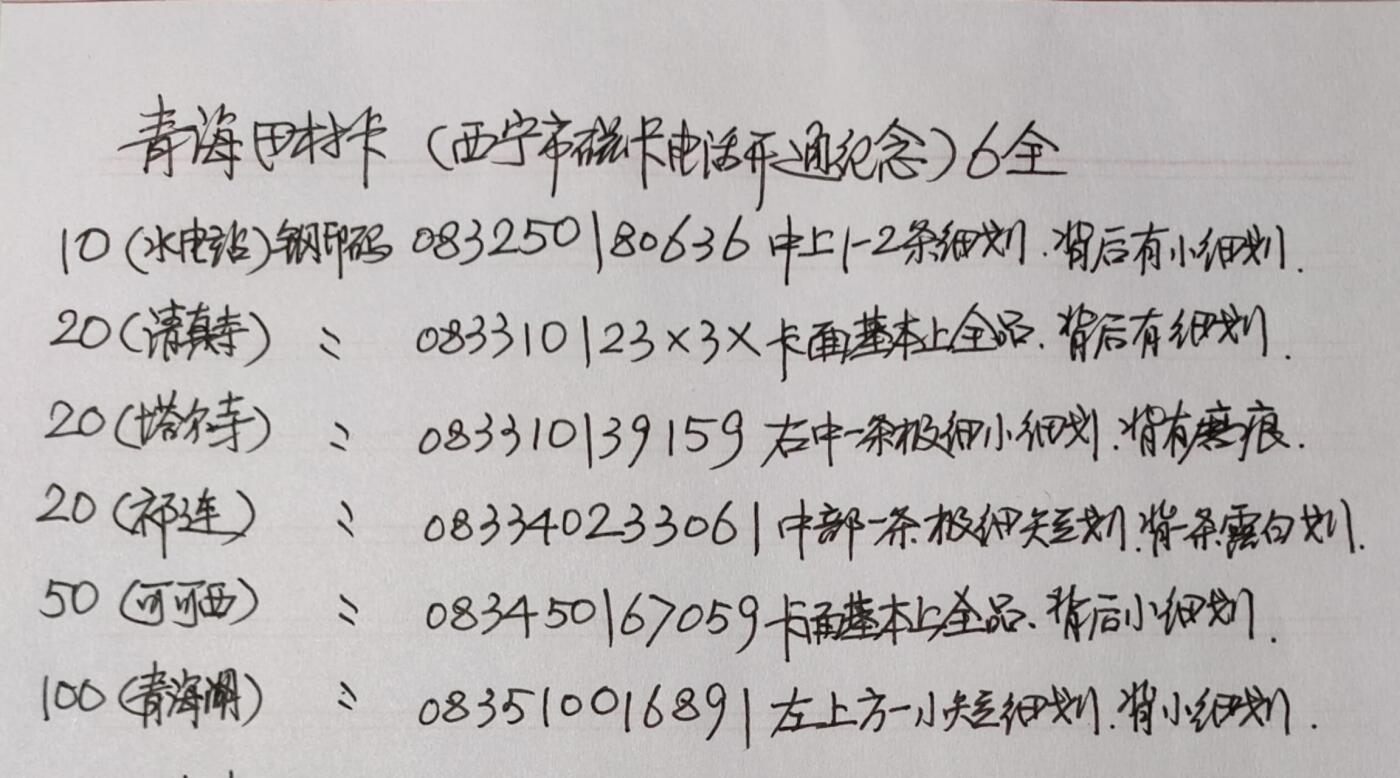 青海田村卡（西宁市磁卡电话开通纪念）6全
10(水电站)钢印码 083250180636 中上1-2条细划.背后有小细划.
20(清真寺) 〃 083310123×3× 卡面基本上全品.背后有细划.
20(塔尔寺) 〃 083310139159 右中一条极细小细划.背有磨痕.
20(祁连) 〃 083340233061 中部一条极细短划.背一条露白划.
50(可可西) 〃 083450167059 卡面基本上全品.背后小细划.
100(青海湖) 〃 083510016891 左上方一小短细划.背小细划.